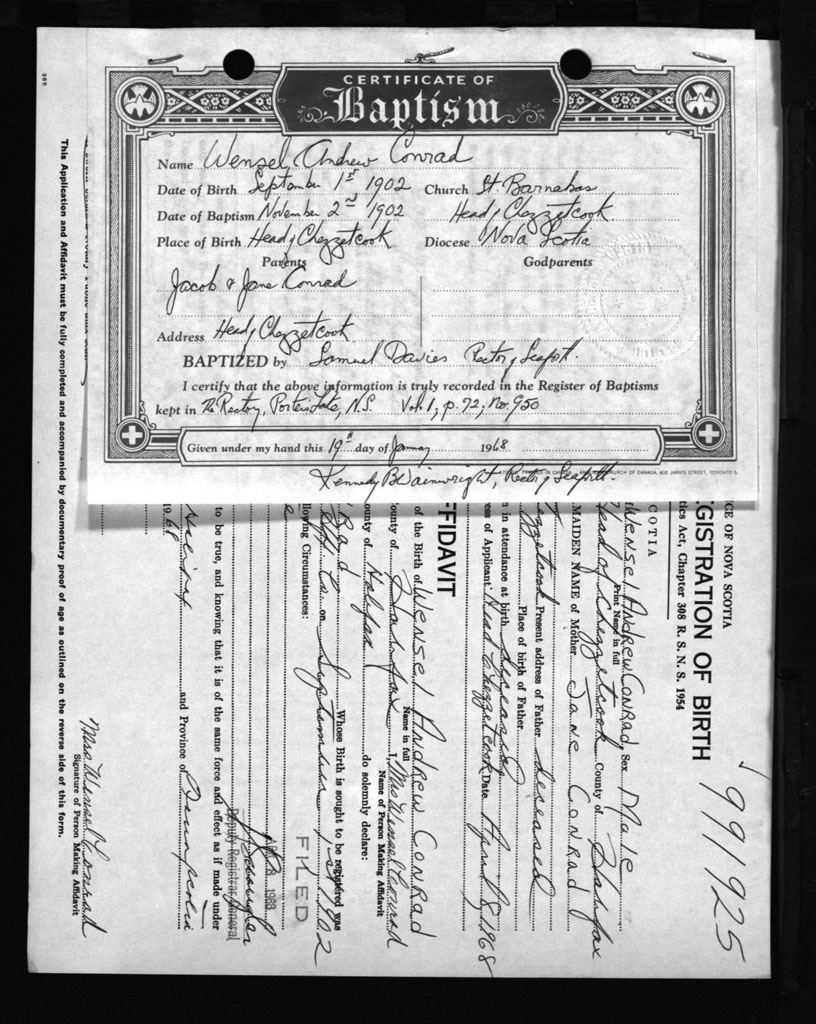 CERTIFICATE OF
Baptism
Name Wensel Andrew Conrad
Date of Birth September 1st 1902 Church St. Barnabas
Date of Baptism November 2nd 1902 Head of Chezzetcook
Place of Birth Head of Chezzetcook Diocese Nova Scotia
Parents Godparents
Jacob & Jane Conrad
Address Head of Chezzetcook
BAPTIZED by Samuel Davies Rector of Seaforth.
I certify that the above information is truly recorded in the Register of Baptisms
kept in The Rectory, Porters Lake, N.S. Vol. 1; p. 72; No. 950
Given under my hand this 19th day of January 1968
Kennedy B Wainwright, Rector of Seaforth.
CHURCH OF CANADA, 600 JARVIS STREET, TORONTO 5.
991925
CE OF NOVA SCOTIA
GISTRATION OF BIRTH
tics Act, Chapter 308 R. S. N. S. 1954
COTIA
Wensel Andrew Conrad Sex Male
Print Name in full
Head of Chezzetcook County of Halifax
MAIDEN NAME of Mother Jane Conrad
ezzetcook Present address of Father deceased
Place of birth of Father
n in attendance at birth deceased
ess of Applicant Head Chezzetcook Date April 8 1968
FFIDAVIT
of the Birth of Wensel Andrew Conrad
Name in full
ounty of Halifax I, Mrs Wensel Conrad
Name of Person Making Affidavit
ounty of Halifax do solemnly declare:
Whose Birth is sought to be registered was
on September 1st 1902
llowing Circumstances:
FILED
Deputy Registrar General
to be true, and knowing that it is of the same force and effect as if made under
and Province of Nova Scotia
1968
Mrs. Wensel Conrad
Signature of Person Making Affidavit
This Application and Affidavit must be fully completed and accompanied by documentary proof of age as outlined on the reverse side of this form.